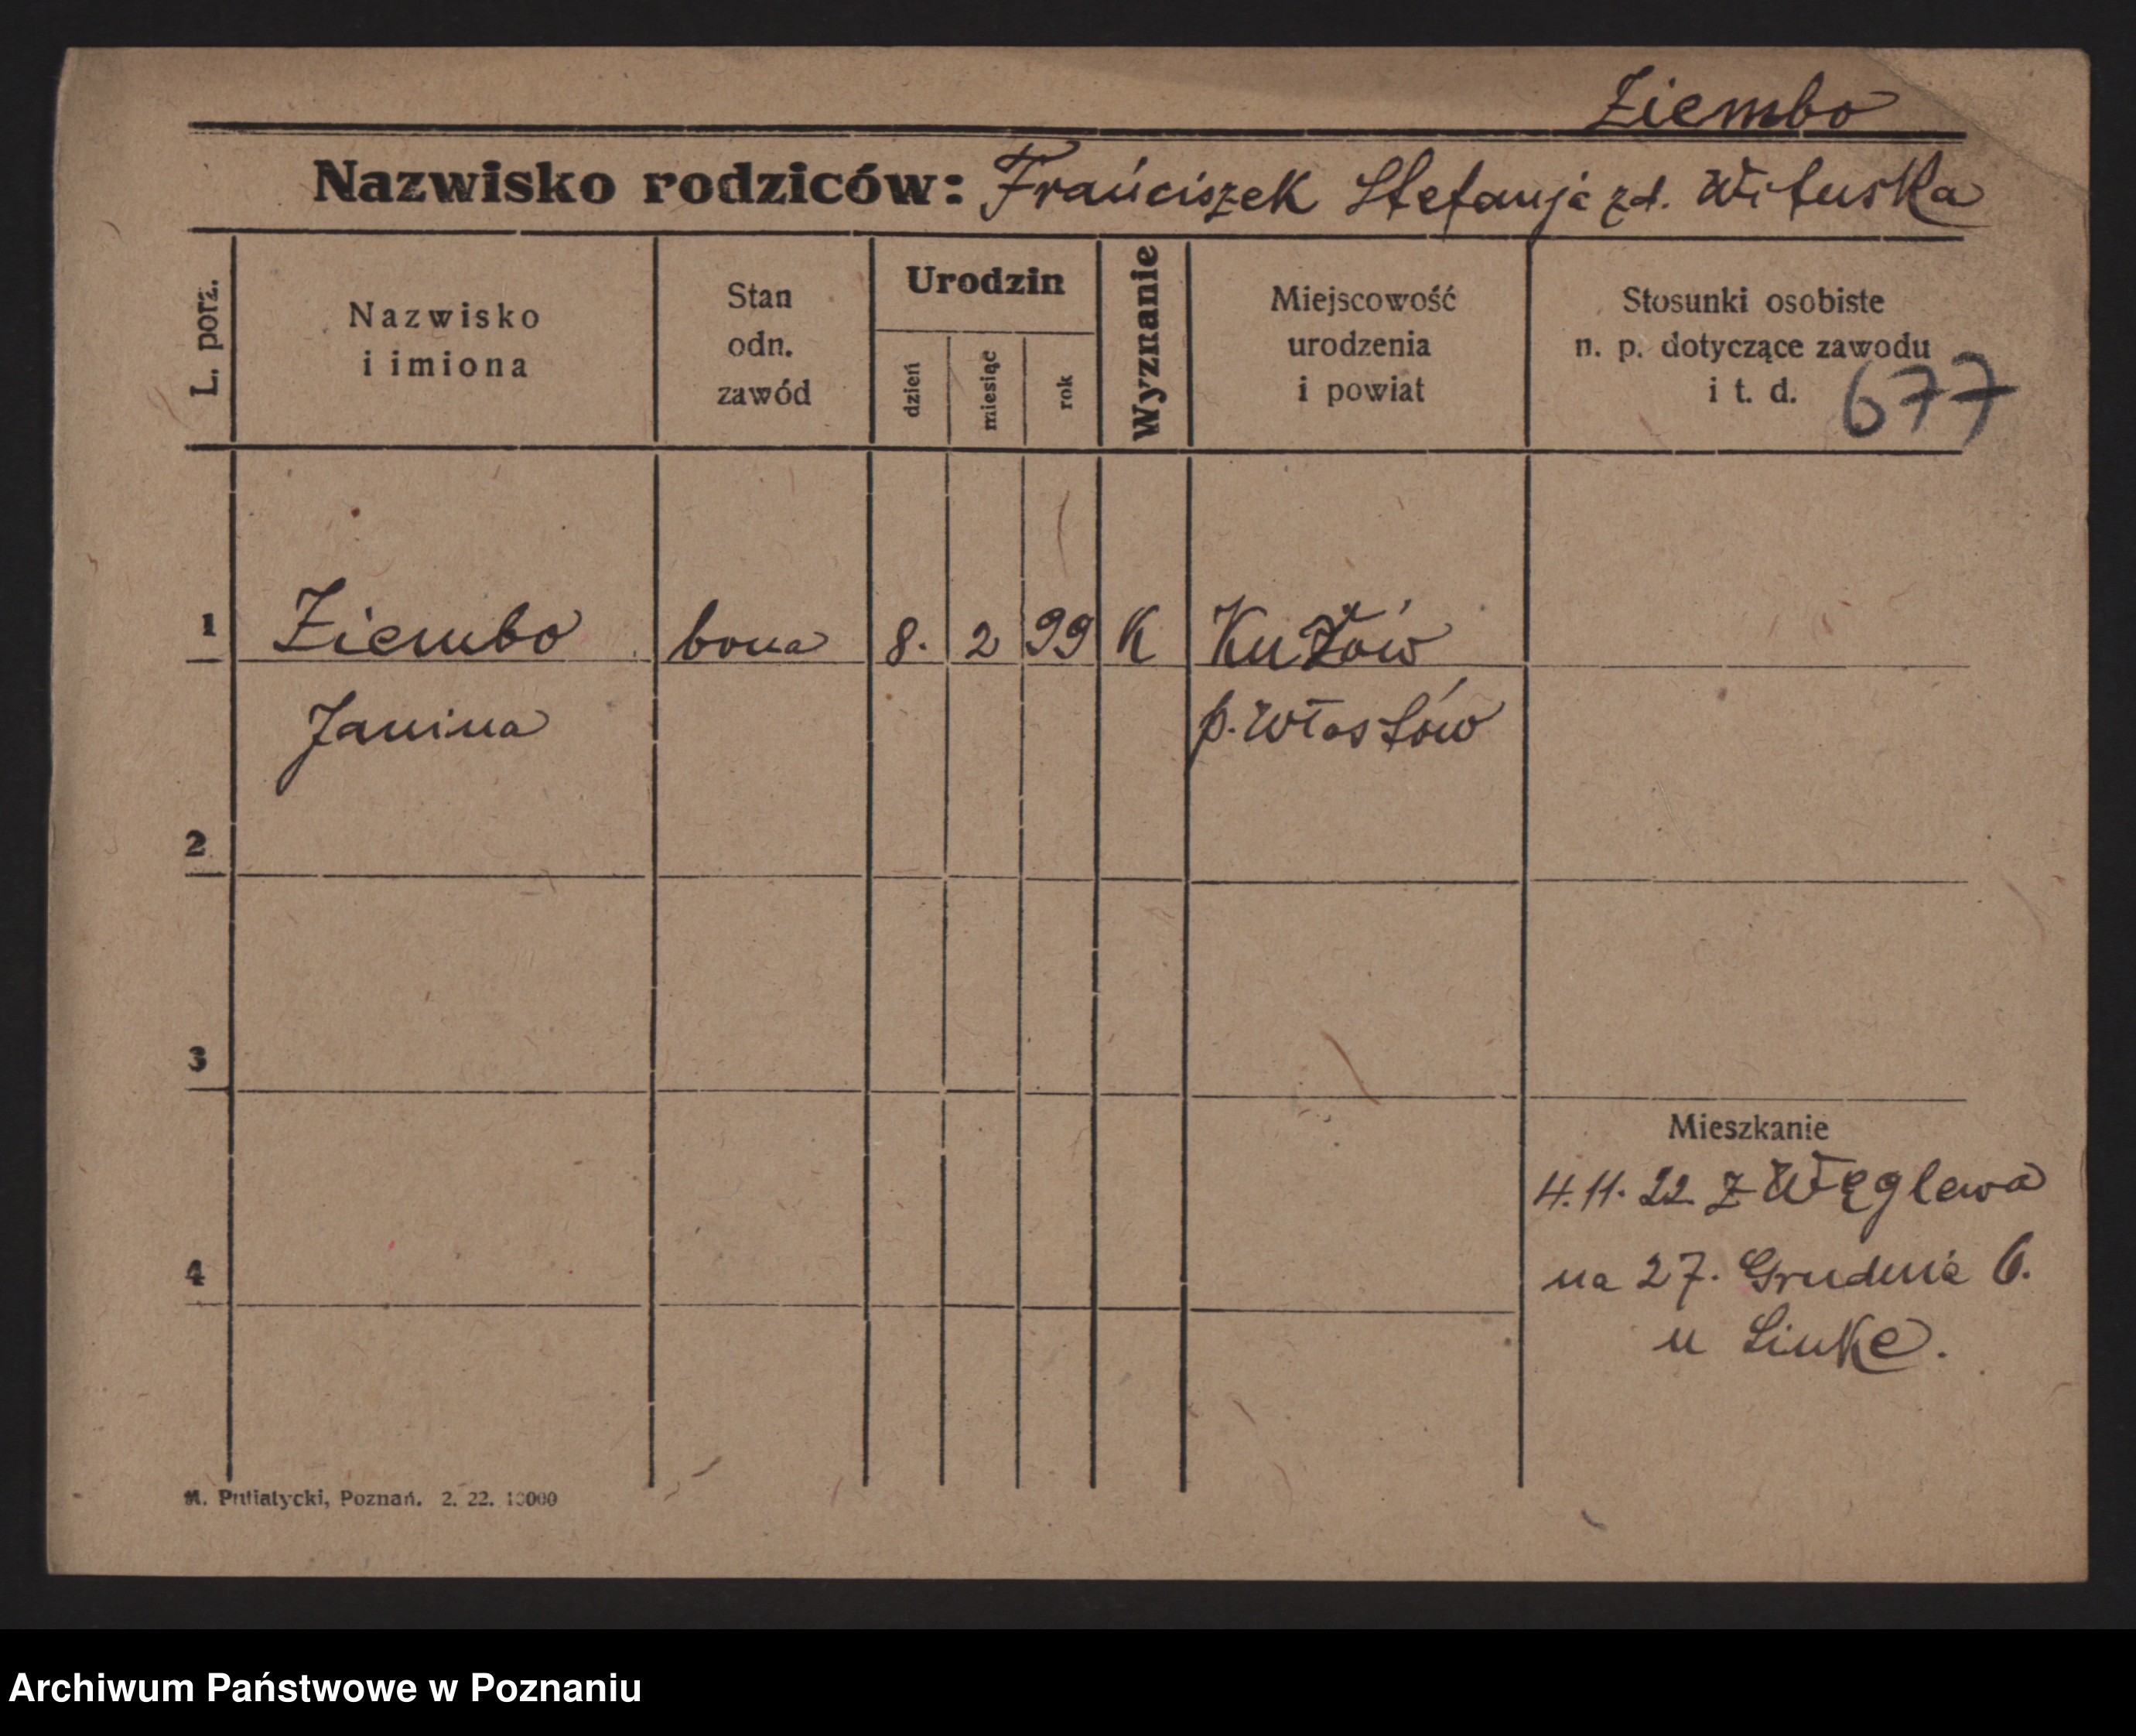 Ziembo
Nazwisko rodziców: Franciszek Stefanja zd. Wituska
L. porz.
Nazwisko
i imiona
Stan
odn.
zawód
Urodzin
dzień
miesiąc
rok
Wyznanie
Miejscowość
urodzenia
i powiat
Stosunki osobiste
n. p. dotyczące zawodu
i t. d.
677
1 Ziembo bona 8. 2 99 K
Janina p. Włostów
2
3
4
Mieszkanie
4.11.22. z Węglewa
na 27. Grudnia 6.
u Linke.
Poznań. 2. 22. 10000
Archiwum Państwowe w Poznaniu